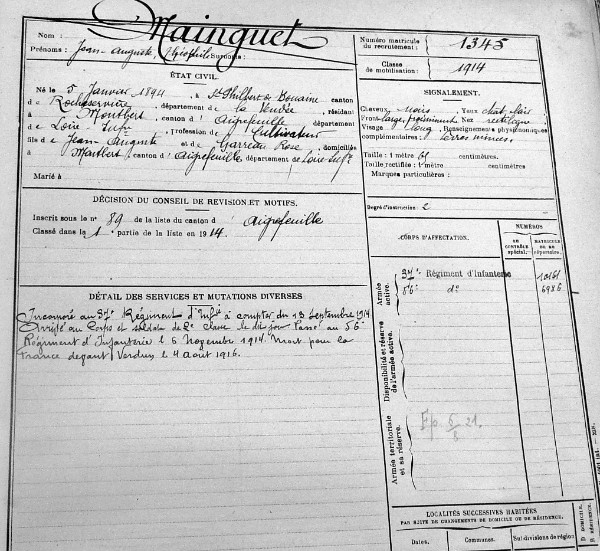 Nom : Mainguet
Prénoms : Jean-Auguste, Théophile Surnoms :
Numéro matricule du recrutement : 1345
Classe de mobilisation : 1914
ÉTAT CIVIL.
Né le 5 Janvier 1894, à St Philbert de Bouaine canton
de Rocheservière, département de la Vendée, résidant
à Montbert, canton d'Aigrefeuille, département
de Loire Infre, profession de Cultivateur
fils de Jean Auguste et de Garreau Rose, domiciliés
à Montbert, canton d'Aigrefeuille, département de Loire-Infre
Marié à
SIGNALEMENT.
Cheveux noirs Yeux chât. clair
Front large, proéminent Nez rectiligne
Visage long Renseignements physionomiques
complémentaires : lèvres minces
Taille : 1 mètre 61 centimètres.
Taille rectifiée : 1 mètre centimètres
Marques particulières :
Degré d'instruction : 2
DÉCISION DU CONSEIL DE REVISION ET MOTIFS.
Inscrit sous le no 89 de la liste du canton d'Aigrefeuille
Classé dans la 1e partie de la liste en 1914.
CORPS D'AFFECTATION.
NUMÉROS
EN CONTRÔLE spécial.
MATRICULE OU EN répertoire.
Armée active.
37e Régiment d'Infanterie 10161
56e do 6986
Disponibilité et réserve de l'armée active.
Armée territoriale et sa réserve.
DÉTAIL DES SERVICES ET MUTATIONS DIVERSES
Incorporé au 37e Régiment d'Infie à compter du 13 Septembre 1914
Arrivé au Corps et soldat de 2e classe le dit jour Passé au 56e
Régiment d'Infanterie le 6 Novembre 1914. Mort pour la
France devant Verdun le 4 août 1916.
LOCALITÉS SUCCESSIVES HABITÉES
PAR SUITE DE CHANGEMENTS DE DOMICILE OU DE RÉSIDENCE.
Dates. Communes. Subdivisions de région
D. DOMICILE.
R. RÉSIDENCE.